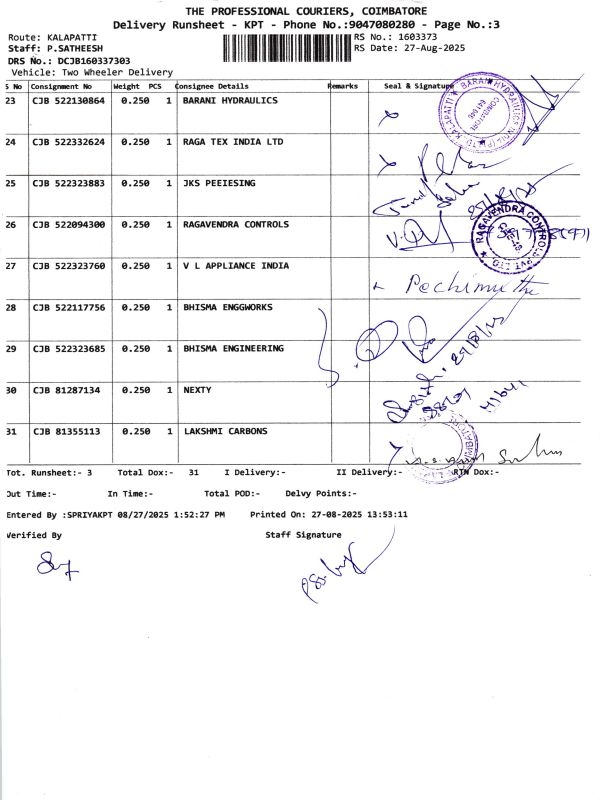 THE PROFESSIONAL COURIERS, COIMBATORE
Delivery Runsheet - KPT - Phone No.:9047080280 - Page No.:3
Route: KALAPATTI RS No.: 1603373
Staff: P.SATHEESH RS Date: 27-Aug-2025
DRS No.: DCJB160337303
Vehicle: Two Wheeler Delivery
S No Consignment No Weight PCS Consignee Details Remarks Seal & Signature
23 CJB 522130864 0.250 1 BARANI HYDRAULICS
24 CJB 522332624 0.250 1 RAGA TEX INDIA LTD
25 CJB 522323883 0.250 1 JKS PEEIESING
26 CJB 522094300 0.250 1 RAGAVENDRA CONTROLS
RAGAVENDRA CONTROLS PVT LTD
27 CJB 522323760 0.250 1 V L APPLIANCE INDIA
Pechimuthu
28 CJB 522117756 0.250 1 BHISMA ENGGWORKS
29 CJB 522323685 0.250 1 BHISMA ENGINEERING
30 CJB 81287134 0.250 1 NEXTY
31 CJB 81355113 0.250 1 LAKSHMI CARBONS
Tot. Runsheet:- 3 Total Dox:- 31 I Delivery:- II Delivery:- RTN Dox:-
Out Time:- In Time:- Total POD:- Delvy Points:-
Entered By :SPRIYAKPT 08/27/2025 1:52:27 PM Printed On: 27-08-2025 13:53:11
Verified By Staff Signature